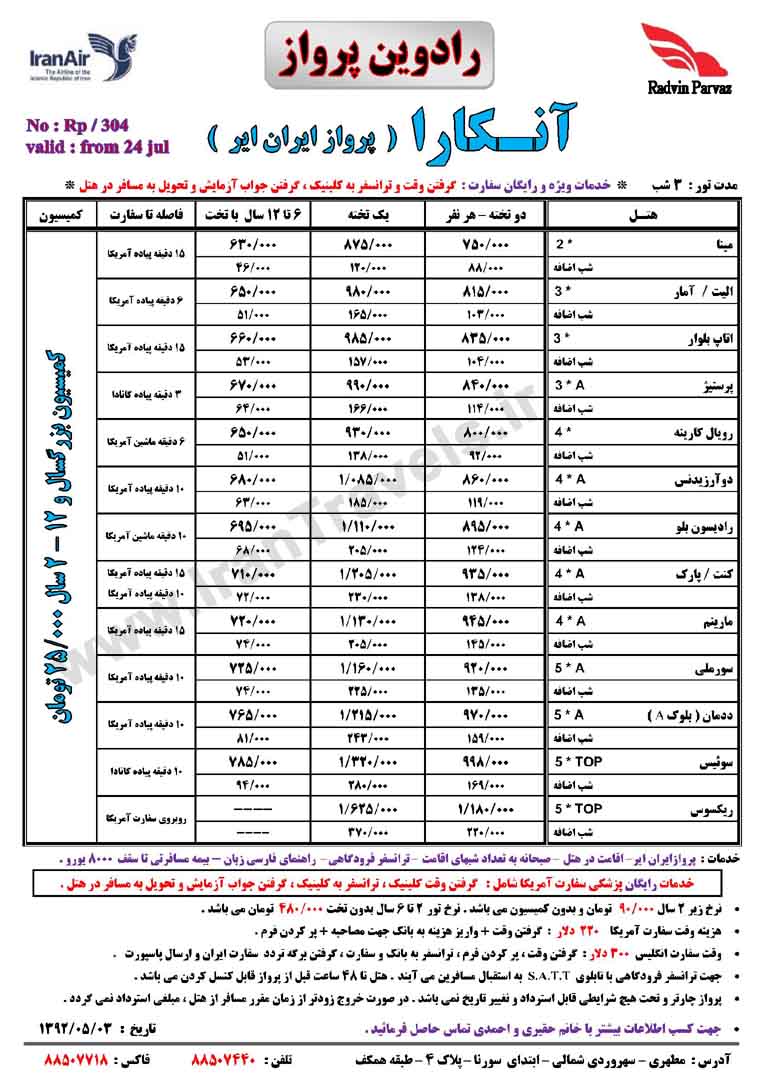 IranAir
The Airline of the
Islamic Republic of Iran
رادوین پرواز
Radvin Parvaz
آنـکارا ( پرواز ایران ایر )
No : Rp / 304
valid : from 24 jul
مدت تور : ۳ شب * خدمات ویژه و رایگان سفارت : گرفتن وقت و ترانسفر به کلینیک ، گرفتن جواب آزمایش و تحویل به مسافر در هتل *
هتـل دو تخته - هر نفر یک تخته ۶ تا ۱۲ سال با تخت فاصله تا سفارت کمیسیون
مینا 2 * ۷۵۰/۰۰۰ ۸۷۵/۰۰۰ ۶۳۰/۰۰۰ ۱۵ دقیقه پیاده آمریکا
شب اضافه ۸۸/۰۰۰ ۱۲۰/۰۰۰ ۴۶/۰۰۰
الیت / آمار 3 * ۸۱۵/۰۰۰ ۹۸۰/۰۰۰ ۶۵۰/۰۰۰ ۶ دقیقه پیاده آمریکا
شب اضافه ۱۰۳/۰۰۰ ۱۶۵/۰۰۰ ۵۱/۰۰۰
اتاپ بلوار 3 * ۸۳۵/۰۰۰ ۹۸۵/۰۰۰ ۶۶۰/۰۰۰ ۱۵ دقیقه پیاده آمریکا
شب اضافه ۱۰۴/۰۰۰ ۱۵۷/۰۰۰ ۵۳/۰۰۰
پرستیژ 3 * A ۸۴۰/۰۰۰ ۹۹۰/۰۰۰ ۶۷۰/۰۰۰ ۳ دقیقه پیاده کانادا
شب اضافه ۱۱۴/۰۰۰ ۱۶۶/۰۰۰ ۶۴/۰۰۰
رویال کارینه 4 * ۸۰۰/۰۰۰ ۹۳۰/۰۰۰ ۶۵۰/۰۰۰ ۶ دقیقه ماشین آمریکا
شب اضافه ۹۲/۰۰۰ ۱۳۸/۰۰۰ ۵۱/۰۰۰
دوآرزیدنس 4 * A ۸۶۰/۰۰۰ ۱/۰۸۵/۰۰۰ ۶۸۰/۰۰۰ ۱۰ دقیقه پیاده آمریکا
شب اضافه ۱۱۹/۰۰۰ ۱۸۵/۰۰۰ ۶۳/۰۰۰
رادیسون بلو 4 * A ۸۹۵/۰۰۰ ۱/۱۱۰/۰۰۰ ۶۹۵/۰۰۰ ۱۰ دقیقه ماشین آمریکا
شب اضافه ۱۲۴/۰۰۰ ۲۰۵/۰۰۰ ۶۸/۰۰۰
کنت / پارک 4 * A ۹۳۵/۰۰۰ ۱/۲۰۵/۰۰۰ ۷۱۰/۰۰۰ ۱۵ دقیقه پیاده آمریکا
شب اضافه ۱۳۸/۰۰۰ ۲۳۰/۰۰۰ ۷۲/۰۰۰ ۱۰ دقیقه پیاده آمریکا
مارینم 4 * A ۹۴۵/۰۰۰ ۱/۱۳۰/۰۰۰ ۷۲۰/۰۰۰ ۱۵ دقیقه پیاده آمریکا
شب اضافه ۱۴۵/۰۰۰ ۲۰۵/۰۰۰ ۷۴/۰۰۰
سورملی 5 * A ۹۲۰/۰۰۰ ۱/۱۶۰/۰۰۰ ۷۲۵/۰۰۰ ۱۰ دقیقه پیاده آمریکا
شب اضافه ۱۳۵/۰۰۰ ۲۲۵/۰۰۰ ۷۴/۰۰۰
ددمان ( بلوک A ) 5 * A ۹۷۰/۰۰۰ ۱/۲۱۵/۰۰۰ ۷۶۵/۰۰۰ ۱۰ دقیقه پیاده آمریکا
شب اضافه ۱۵۹/۰۰۰ ۲۴۳/۰۰۰ ۸۱/۰۰۰
سوئیس 5 * TOP ۹۹۸/۰۰۰ ۱/۳۲۰/۰۰۰ ۷۸۵/۰۰۰ ۱۰ دقیقه پیاده کانادا
شب اضافه ۱۶۹/۰۰۰ ۲۸۰/۰۰۰ ۹۴/۰۰۰
ریکسوس 5 * TOP ۱/۱۸۰/۰۰۰ ۱/۶۲۵/۰۰۰ ---- روبروی سفارت آمریکا
شب اضافه ۲۲۰/۰۰۰ ۳۷۰/۰۰۰ ----
کمیسیون بزرگسال و ۱۲ – ۲ سال ۲۵/۰۰۰ تومان
www.IranTravels.ir
خدمات : پروازایران ایر- اقامت در هتل - صبحانه به تعداد شبهای اقامت - ترانسفر فرودگاهی - راهنمای فارسی زبان – بیمه مسافرتی تا سقف ۸۰۰۰ یورو .
خدمات رایگان پزشکی سفارت آمریکا شامل : گرفتن وقت کلینیک ، ترانسفر به کلینیک ، گرفتن جواب آزمایش و تحویل به مسافر در هتل .
• نرخ زیر ۲ سال ۹۰/۰۰۰ تومان و بدون کمیسیون می باشد . نرخ تور ۲ تا ۶ سال بدون تخت ۴۸۰/۰۰۰ تومان می باشد .
• هزینه وقت سفارت آمریکا ۲۲۰ دلار : گرفتن وقت + واریز هزینه به بانک جهت مصاحبه + پر کردن فرم .
• وقت سفارت انگلیس ۳۰۰ دلار : گرفتن وقت ، پر کردن فرم ، ترانسفر به بانک و سفارت ، گرفتن برگه تردد سفارت ایران و ارسال پاسپورت .
• جهت ترانسفر فرودگاهی با تابلوی S.A.T.T به استقبال مسافرین می آیند . هتل تا ۴۸ ساعت قبل از پرواز قابل کنسل کردن می باشد .
• پرواز چارتر و تحت هیچ شرایطی قابل استرداد و تغییر تاریخ نمی باشد . در صورت خروج زودتر از زمان مقرر مسافر از هتل ، مبلغی استرداد نمی گردد .
• جهت کسب اطلاعات بیشتر با خانم حقیری و احمدی تماس حاصل فرمائید . تاریخ : ۱۳۹۲/۰۵/۰۳
آدرس : مطهری - سهروردی شمالی - ابتدای سورنا - پلاک ۴ - طبقه همکف تلفن : ۸۸۵۰۷۴۴۰ فاکس : ۸۸۵۰۷۷۱۸